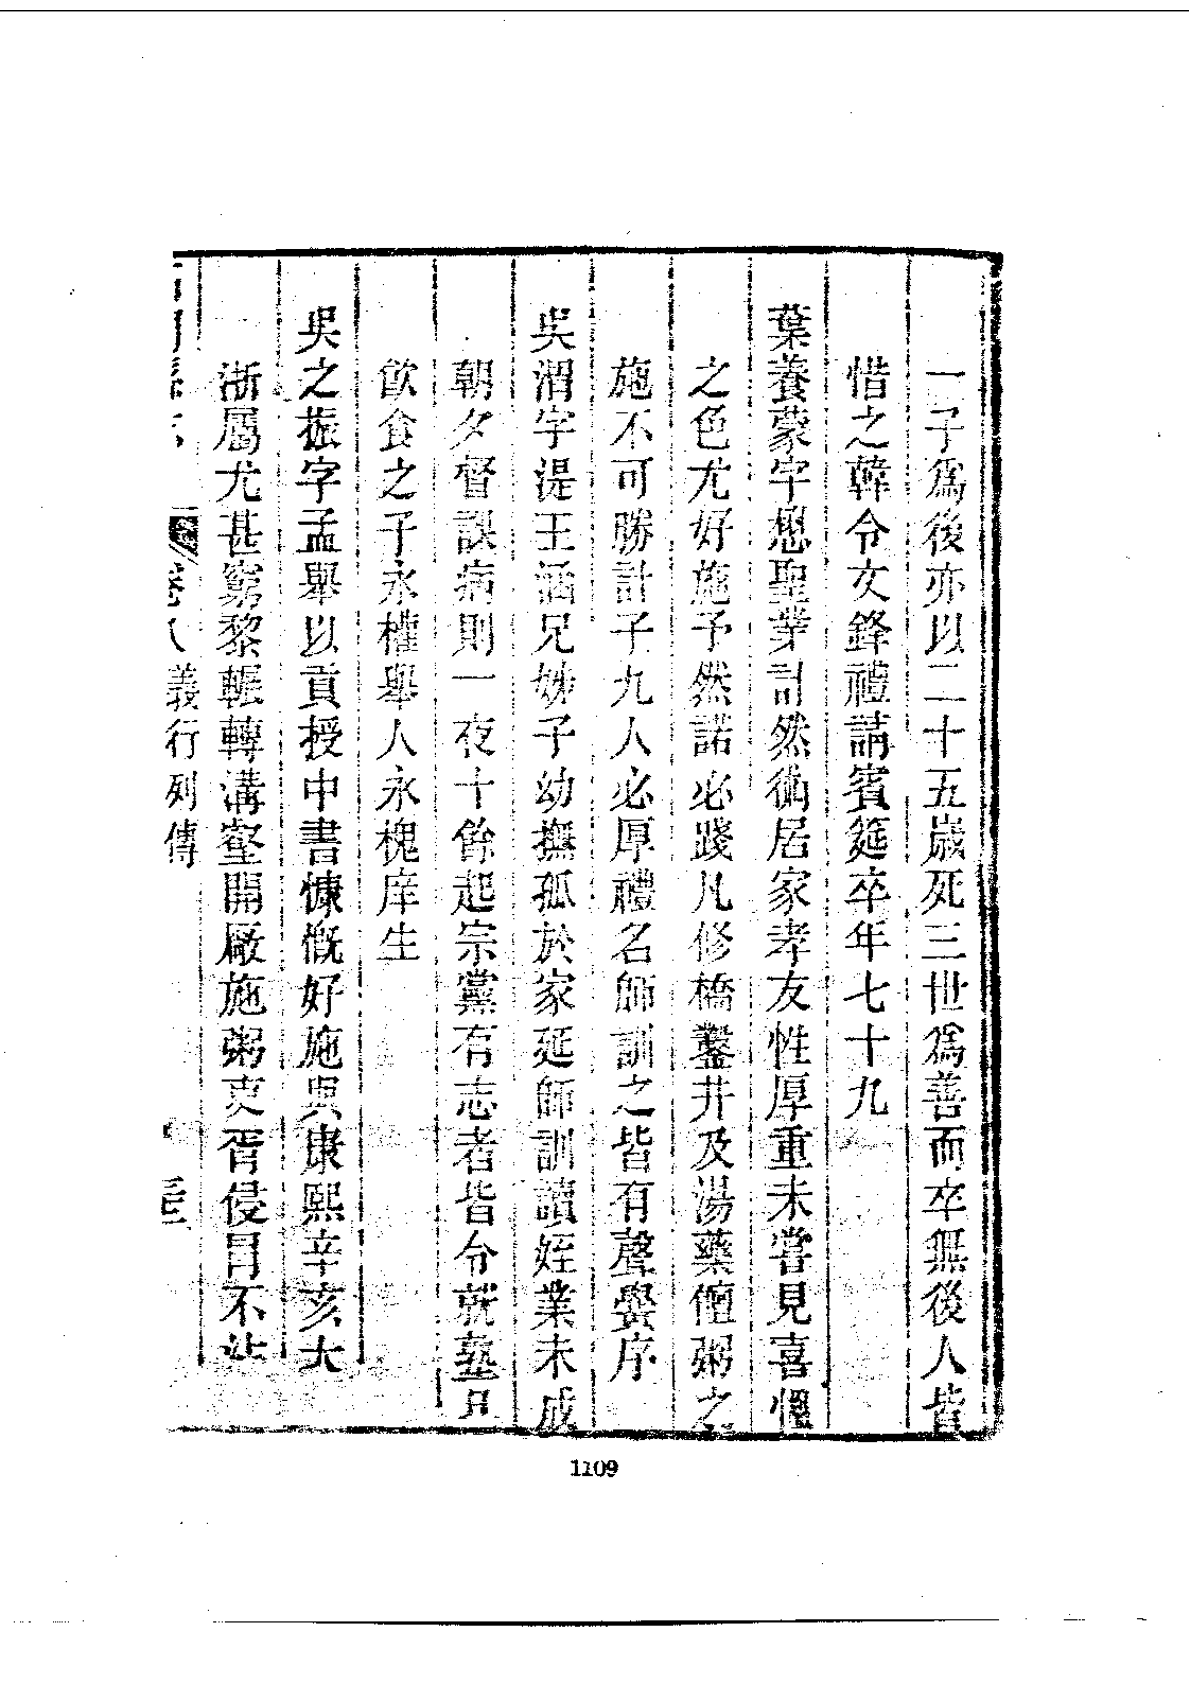 一子爲後亦以二十五歲死三世爲善而卒無後人皆
惜之韓令文鋒禮請賓筵卒年七十九
葉養蒙字懋聖業計然術居家孝友性厚重未嘗見喜慍
之色尤好施予然諾必踐凡修橋鑿井及湯藥饘粥之
施不可勝計子九人必厚禮名師訓之皆有聲黌序
吳渭字湜王涵兄姊子幼撫孤於家延師訓讀姪業未成
朝夕督課病則一夜十餘起宗黨有志者皆令就塾且
飲食之子永權舉人永槐庠生
吳之振字孟舉以貢授中書慷慨好施與康熙辛亥大
浙屬尤甚窮黎輾轉溝壑開厰施粥吏胥侵冒不沾
卷八義行列傳
1109